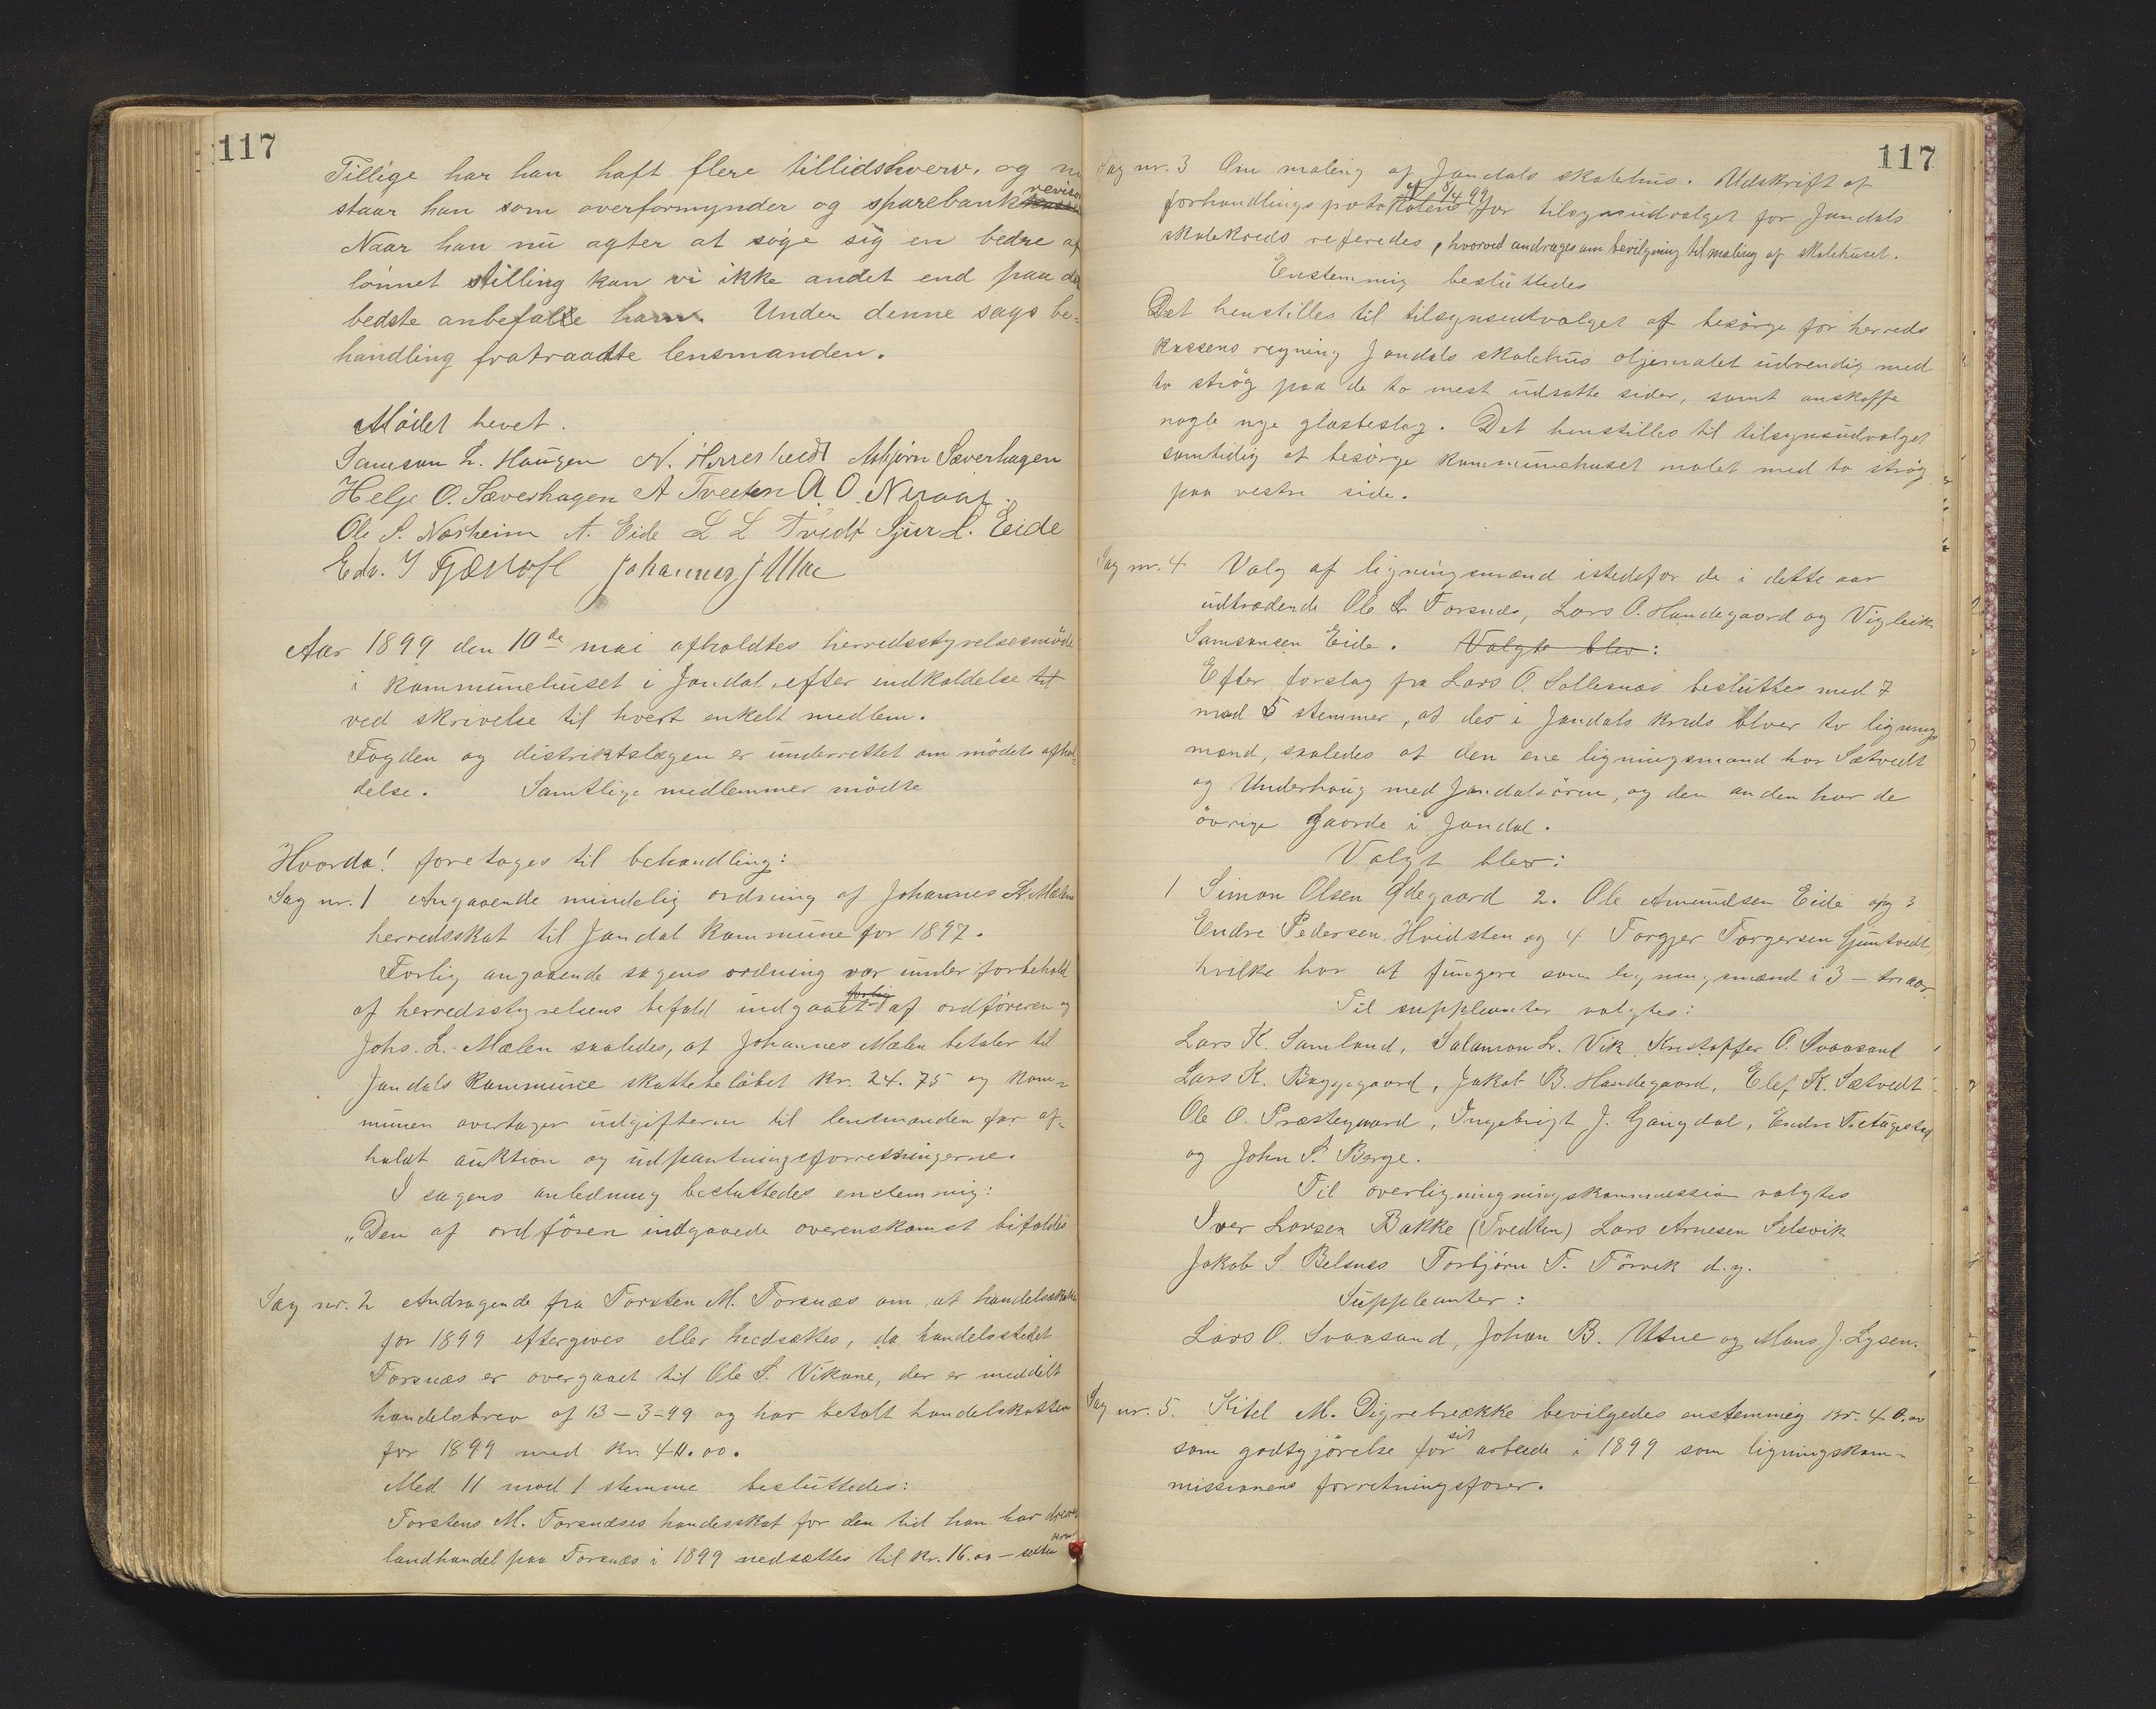 117
Tillige har han haft flere tillidshverv, og nu
staar han som overformynder og sparebankrevisor
Naar han nu agter at søge sig en bedre af
lønnet stilling kan vi ikke andet end paa det
bedste anbefalle ham. Under denne sags be-
handling fratraadte lensmanden.
Mødet hevet.
Samson L. Haugen N. Herres Asbjørn Sæverhagen
Helge O. Sæverhagen A Tveeten A O. Neraas
Ole S. Norheim A. Eide L L Tvedt Sjur L. Eide
Edv. J Johannes J Utne
Aar 1899 den 10de mai afholdtes herredsstyrelsesmøde
i kommunehuset i Jondal efter indkaldelse til
ved skrivelse til hvert enkelt medlem.
Fogden og distriktslægen er underrettet om mødets afhol-
delse. Samtlige medlemmer mødte
Hvorda! foretages til behandling:
Sag nr. 1 Angaaende mindelig ordning af Johannes L. Mælen
herredsskat til Jondal kommune for 1897.
Forlig angaaende sagens ordning var under forbehold
af herredsstyrelsens bifald indgaaet forlig af ordføreren og
Johs. L. Mælen saaledes, at Johannes Mælen betaler til
Jondals kommune skattebeløbet kr. 24.75 og kom-
munen overtager udgifterne til lensmanden for af-
holdt auktion og udpantningsforretningerne.
I sagens anledning besluttedes enstemmig:
„Den af ordføren indgaaede overenskomst bifaldes"
Sag nr. 2 Andragende fra Torsten M. Torsnæs om at handelsskatten
for 1899 eftergives eller nedsættes, da handelsstedet
Torsnæs er overgaaet til Ole S. Vikane, der er meddelt
handelsbrev af 13-3-99 og har betalt handelskatten
for 1899 med kr. 40.00.
Med 11 mod 1 stemme besluttedes:
Torstens M. Torsnæses handesskat for den tid han har drevet
landhandel paa Torsnæs i 1899 nedsættes til kr. 16.00 –
117
Sag nr. 3 Om maling af Jondals skolehus. Udskrift af
forhandlingsprotokolen af 8/4 99 for tilsynsudvalget for Jondals
skolekreds referedes, hvorved andrages om bevilgning til maling af skolehuset.
Enstemmig besluttedes
Det henstilles til tilsynsudvalget at besørge for herreds
kassens regning Jondals skolehus oljemalet udvendig med
to strøg paa de to mest udsatte sider, samt anskaffe
nogle nye glasbeslag. Det henstilles til tilsynsudvalget
samtidig at besørge kommunehuset malet med to strøg
paa vestre side.
Sag nr. 4 Valg af ligningsmænd istedefor de i dette aar
udtrædende Ole L. Torsnæs, Lars O. Handegaard og Vigleik
Samsonsen Eide. Valgte blev:
Efter forslag fra Lars O. Sollesnæs besluttes med 7
mod 5 stemmer, at der i Jondals kreds bliver to lignings
mænd, saaledes at den ene ligningsmand har Sætvedt
og Underhaug med Jondalsøren, og den anden har de
øvrige gaarde i Jondal.
Valgt blev:
1 Simon Olsen Ødegaard 2. Ole Amundsen Eide og 3
Endre Pedersen Hvidsten og 4 Torgjer Torgersen Guntvedt
hvilke har at fungere som ligningsmænd i 3 - tre aar.
Til suppleanter valgtes:
Lars K. Samland, Salamon L. Vik, Kristoffer O. Svaasand
Lars K. Byggegaard, Jakob B. Handegaard, Elef K. Sætvedt
Ole O. Præstegaard, Ingebrigt J. Gangdal, Endre T.
og John S. Berge.
Til overligningningskommission valgtes
Iver Larsen Bakke (Tvedten) Lars Arnesen Selsvik
Jakob S. Belsnes Torbjørn T. Tørvik d.y.
Suppleanter:
Lars O. Svaasand, Johan B. Utne og Mons J. Lysen.
Sag nr. 5. Kitel M. Digrebrække bevilgedes enstemmig kr. 40.00
som godtgjørelse for sit arbeide i 1899 som ligningskom-
missionens forretningsfører.